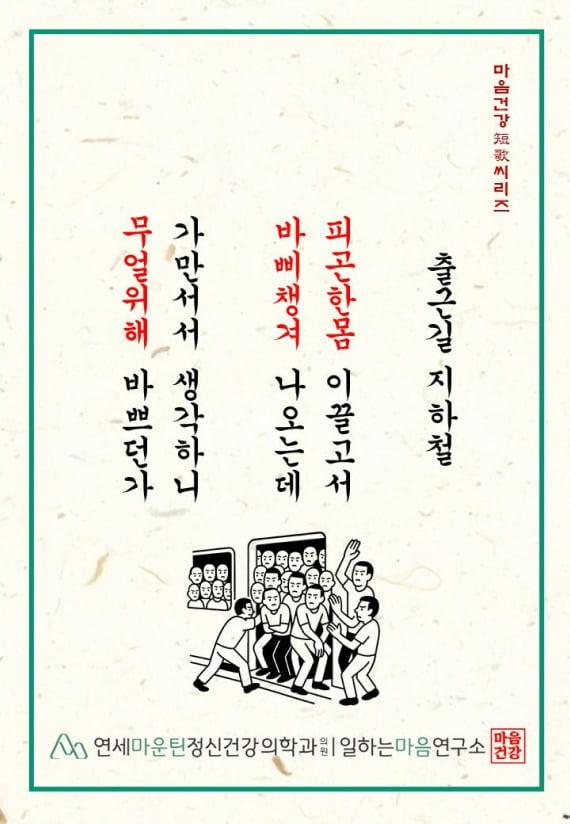 마음건강 短歌 씨리즈
출근길 지하철
피곤한몸 이끌고서
바삐챙겨 나오는데
가만서서 생각하니
무얼위해 바쁘던가
연세마운틴정신건강의학과의원 | 일하는마음연구소
마음
건강